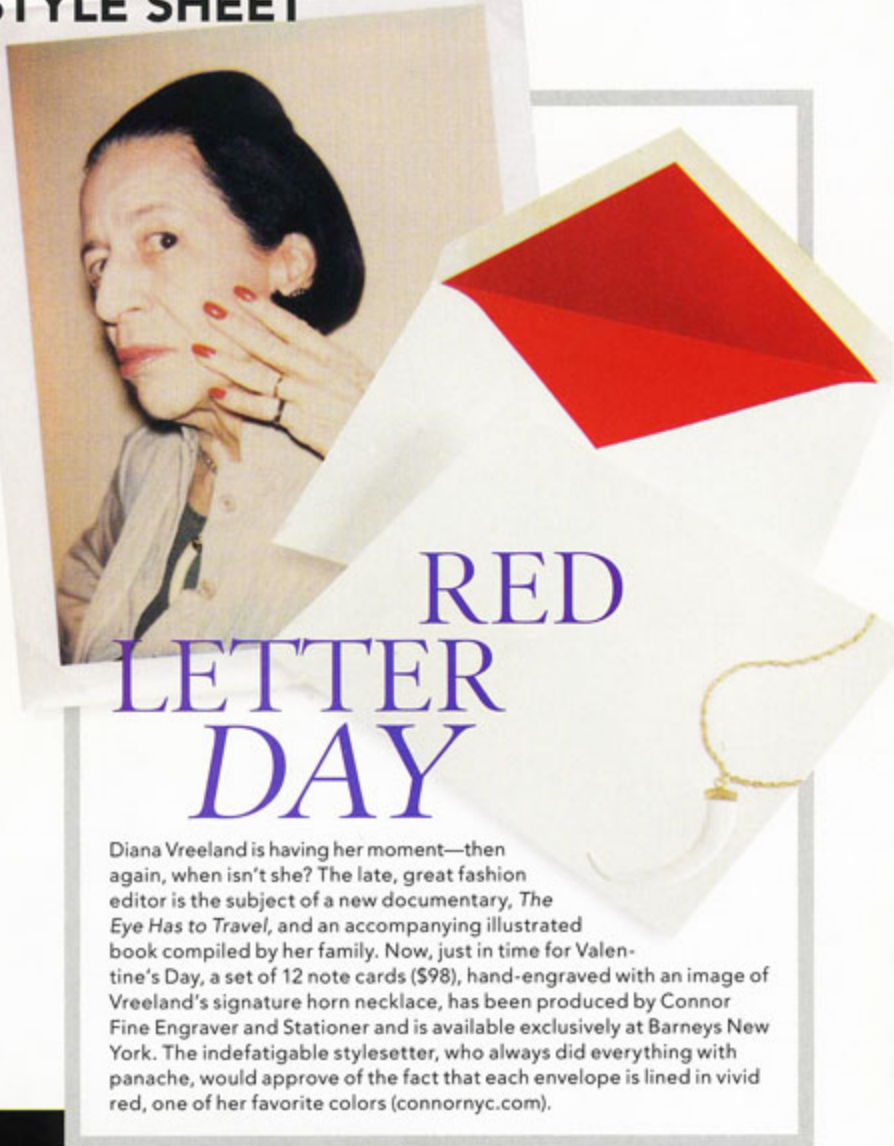 STYLE SHEET
RED
LETTER
DAY
Diana Vreeland is having her moment—then
again, when isn't she? The late, great fashion
editor is the subject of a new documentary, The
Eye Has to Travel, and an accompanying illustrated
book compiled by her family. Now, just in time for Valen-
tine's Day, a set of 12 note cards ($98), hand-engraved with an image of
Vreeland's signature horn necklace, has been produced by Connor
Fine Engraver and Stationer and is available exclusively at Barneys New
York. The indefatigable stylesetter, who always did everything with
panache, would approve of the fact that each envelope is lined in vivid
red, one of her favorite colors (connornyc.com).